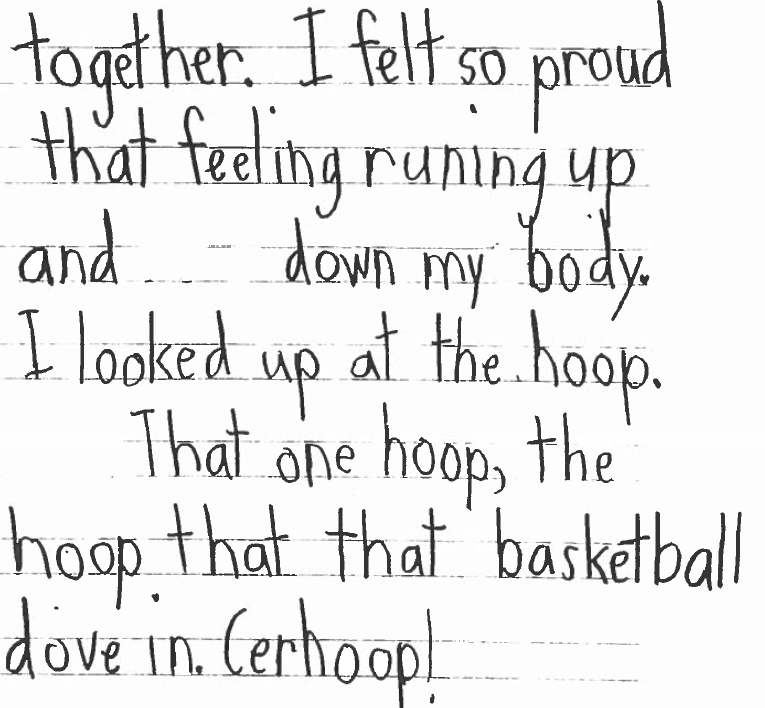 together. I felt so proud
that feeling runing up
and down my body.
I looked up at the hoop.
That one hoop, the
hoop that that basketball
dove in. Cerhoop!